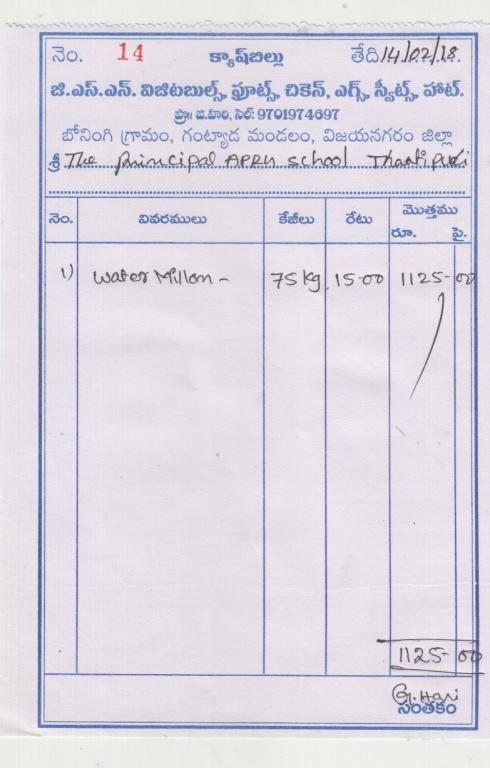 నెం. 14 క్యాష్‌బిల్లు తేది 14/02/18.
జి.ఎస్.ఎన్. విజిటబుల్స్, ఫ్రూట్స్, చికెన్, ఎగ్స్, స్వీట్స్, హాట్.
ప్రొ॥ జి.హరి, సెల్: 9701974697
బోనింగి గ్రామం, గంట్యాడ మండలం, విజయనగరం జిల్లా
శ్రీ The Principal APRH School Thaatipudi
నెం. వివరములు కేజీలు రేటు మొత్తము
రూ. పై.
1) Water Millon - 75 kg 15-00 1125-00
1125-00
G. Hari
సంతకం